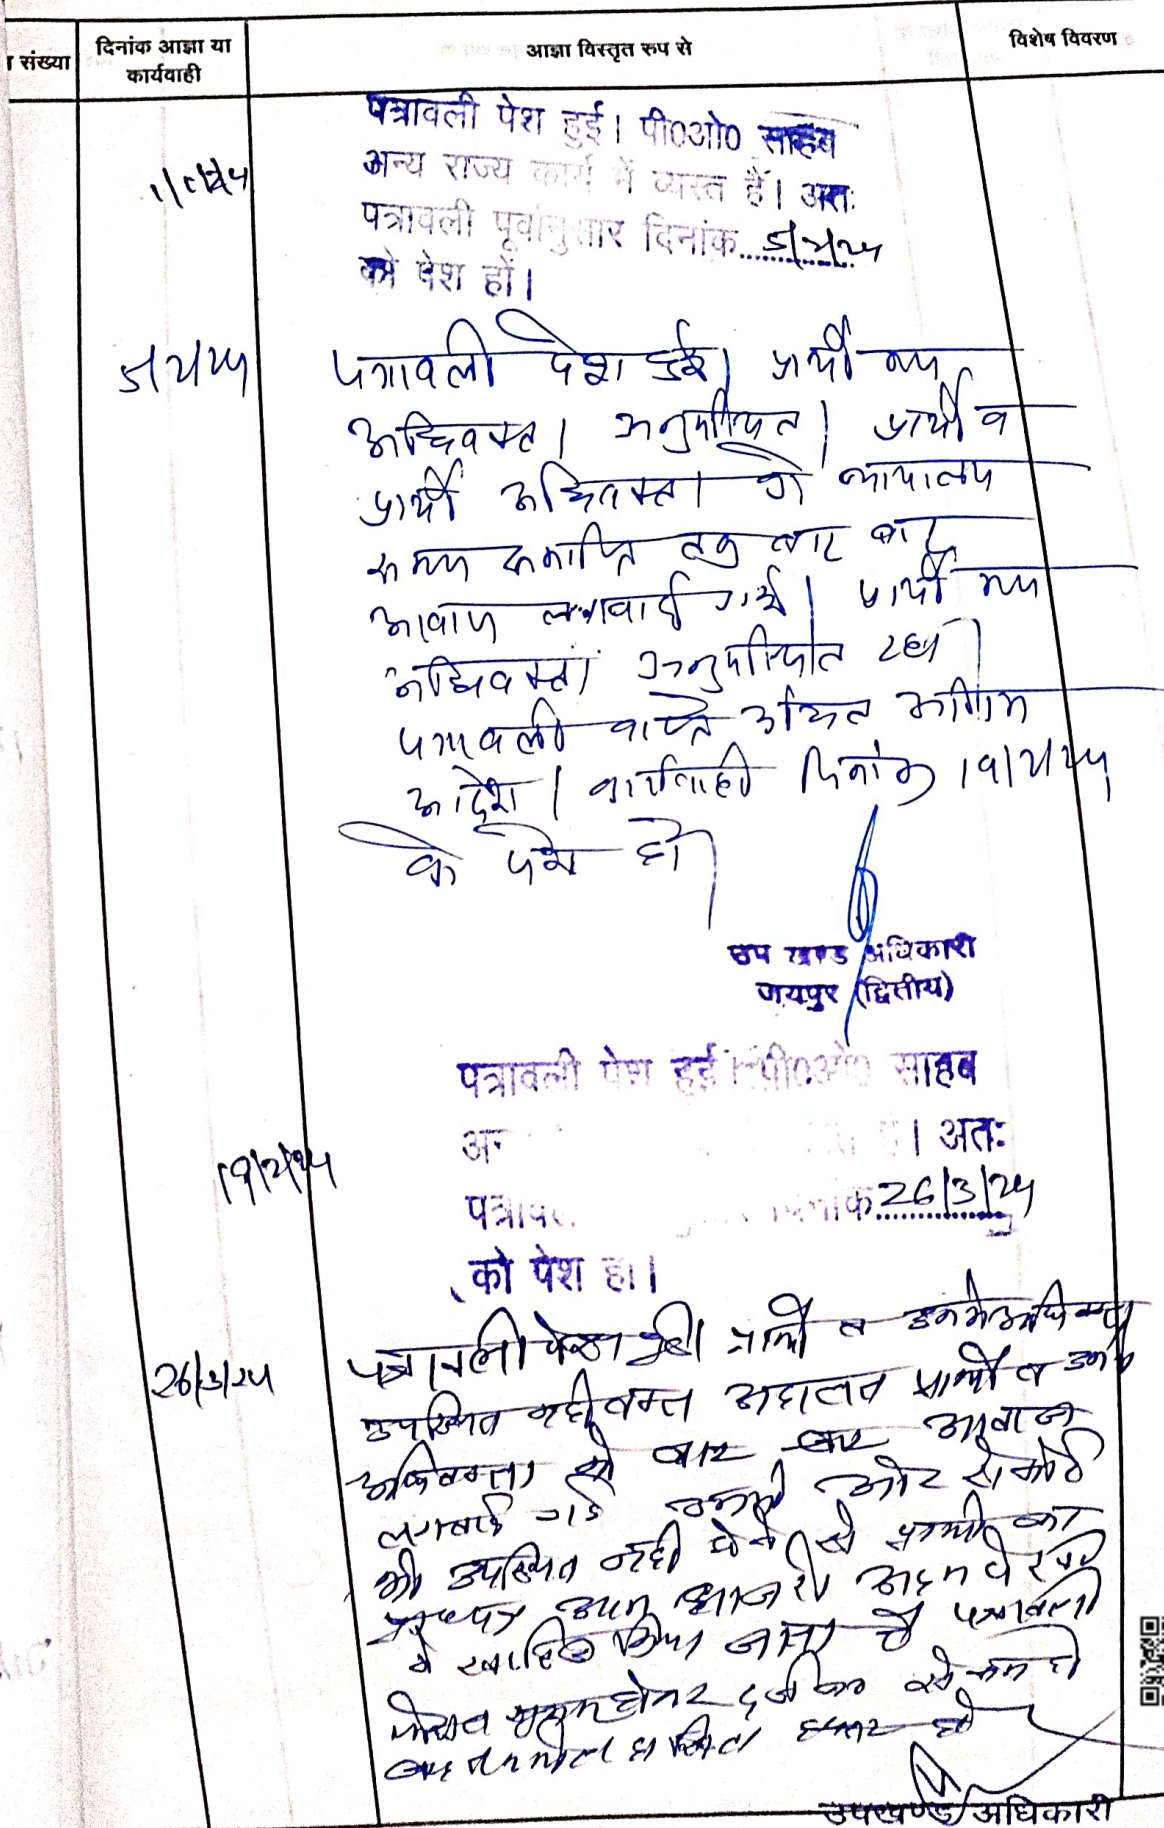 संख्या
दिनांक आज्ञा या
कार्यवाही
आज्ञा विस्तृत रुप से
विशेष विवरण
पत्रावली पेश हुई। पी0ओ0 साहब
अन्य राज्य कार्य में व्यस्त हैं। अतः
पत्रावली पूर्वानुसार दिनांक
को पेश हों।
पत्रावली पेश हुई। प्रार्थी मय
अधिवक्ता अनुपस्थित। प्रार्थी व
प्रार्थी अधिवक्ता को न्यायालय
समय समाप्ति तक बार बार
आवाज लगवाई गई। प्रार्थी मय
अधिवक्ता अनुपस्थित रहा।
पत्रावली वास्ते उचित अग्रिम
आदेश। कार्यवाही दिनांक
को पेश हो।
उप खण्ड अधिकारी
जयपुर (द्वितीय)
पत्रावली पेश हुई। पी0ओ0 साहब
अतः
26/3/24
को पेश हो।
26/3/24
पत्रावली पेश हुई। प्रार्थी व उनके अधिवक्ता
उपस्थित नही वक्त अदालत प्रार्थी व उनके
अधिवक्ता को बार बार आवाज
लगवाई गई उनकी ओर से कोई
भी उपस्थित नही होने से प्रार्थी का
अदम पैरवी
मे खारिज किया जाता है पत्रावली
होकर दर्ज
दाखिल दफ्तर हो
उपखण्ड अधिकारी